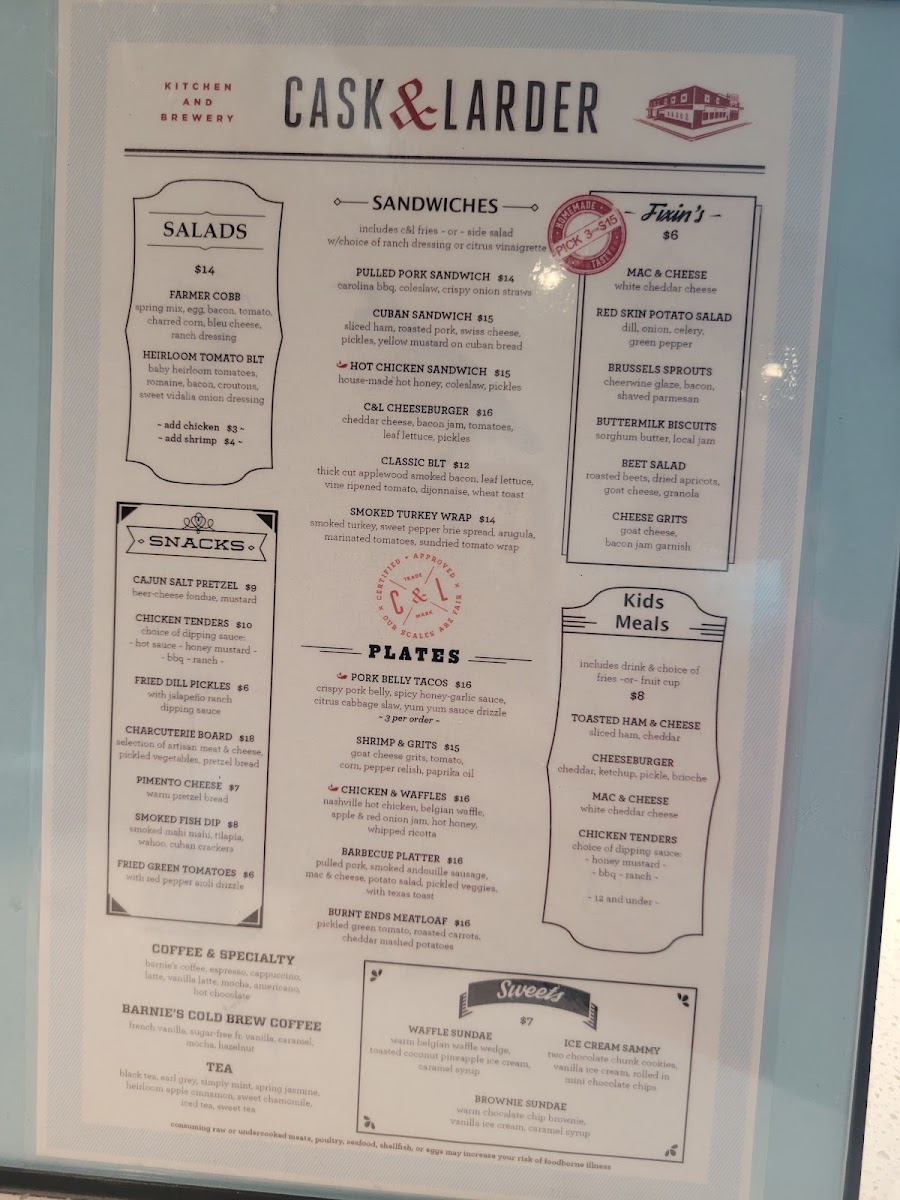 KITCHEN
AND
BREWERY
CASK & LARDER
SALADS
$14
FARMER COBB
spring mix, egg, bacon, tomato,
charred corn, bleu cheese,
ranch dressing
HEIRLOOM TOMATO BLT
baby heirloom tomatoes,
romaine, bacon, croutons,
sweet vidalia onion dressing
~ add chicken $3 ~
~ add shrimp $4 ~
SNACKS
CAJUN SALT PRETZEL $9
beer-cheese fondue, mustard
CHICKEN TENDERS $10
choice of dipping sauce:
~ hot sauce ~ honey mustard ~
~ bbq ~ ranch ~
FRIED DILL PICKLES $6
with jalapeño ranch
dipping sauce
CHARCUTERIE BOARD $18
selection of artisan meat & cheese,
pickled vegetables, pretzel bread
PIMENTO CHEESE $7
warm pretzel bread
SMOKED FISH DIP $8
smoked mahi mahi, tilapia,
wahoo, cuban crackers
FRIED GREEN TOMATOES $6
with red pepper aioli drizzle
COFFEE & SPECIALTY
barnie's coffee, espresso, cappuccino,
latte, vanilla latte, mocha, americano,
hot chocolate
BARNIE'S COLD BREW COFFEE
french vanilla, sugar-free fr. vanilla, caramel,
mocha, hazelnut
TEA
black tea, earl grey, simply mint, spring jasmine,
heirloom apple cinnamon, sweet chamomile,
iced tea, sweet tea
SANDWICHES
includes c&l fries ~ or ~ side salad
w/choice of ranch dressing or citrus vinaigrette
PULLED PORK SANDWICH $14
carolina bbq, coleslaw, crispy onion straws
CUBAN SANDWICH $15
sliced ham, roasted pork, swiss cheese,
pickles, yellow mustard on cuban bread
HOT CHICKEN SANDWICH $15
house-made hot honey, coleslaw, pickles
C&L CHEESEBURGER $16
cheddar cheese, bacon jam, tomatoes,
leaf lettuce, pickles
CLASSIC BLT $12
thick cut applewood smoked bacon, leaf lettuce,
vine ripened tomato, dijonnaise, wheat toast
SMOKED TURKEY WRAP $14
smoked turkey, sweet pepper brie spread, arugula,
marinated tomatoes, sundried tomato wrap
CERTIFIED • APPROVED
TRADE
C & L
MARK
OUR SCALES ARE FAIR
PLATES
PORK BELLY TACOS $16
crispy pork belly, spicy honey-garlic sauce,
citrus cabbage slaw, yum yum sauce drizzle
~ 3 per order ~
SHRIMP & GRITS $15
goat cheese grits, tomato,
corn, pepper relish, paprika oil
CHICKEN & WAFFLES $16
nashville hot chicken, belgian waffle,
apple & red onion jam, hot honey,
whipped ricotta
BARBECUE PLATTER $16
pulled pork, smoked andouille sausage,
mac & cheese, potato salad, pickled veggies,
with texas toast
BURNT ENDS MEATLOAF $16
pickled green tomato, roasted carrots,
cheddar mashed potatoes
HOMEMADE
PICK 3~$15
TASTY
Fixin's
$6
MAC & CHEESE
white cheddar cheese
RED SKIN POTATO SALAD
dill, onion, celery,
green pepper
BRUSSELS SPROUTS
cheerwine glaze, bacon,
shaved parmesan
BUTTERMILK BISCUITS
sorghum butter, local jam
BEET SALAD
roasted beets, dried apricots,
goat cheese, granola
CHEESE GRITS
goat cheese,
bacon jam garnish
Kids
Meals
includes drink & choice of
fries ~or~ fruit cup
$8
TOASTED HAM & CHEESE
sliced ham, cheddar
CHEESEBURGER
cheddar, ketchup, pickle, brioche
MAC & CHEESE
white cheddar cheese
CHICKEN TENDERS
choice of dipping sauce:
~ honey mustard ~
~ bbq ~ ranch ~
~ 12 and under ~
Sweets
$7
WAFFLE SUNDAE
warm belgian waffle wedge,
toasted coconut pineapple ice cream,
caramel syrup
ICE CREAM SAMMY
two chocolate chunk cookies,
vanilla ice cream, rolled in
mini chocolate chips
BROWNIE SUNDAE
warm chocolate chip brownie,
vanilla ice cream, caramel syrup
consuming raw or undercooked meats, poultry, seafood, shellfish, or eggs may increase your risk of foodborne illness